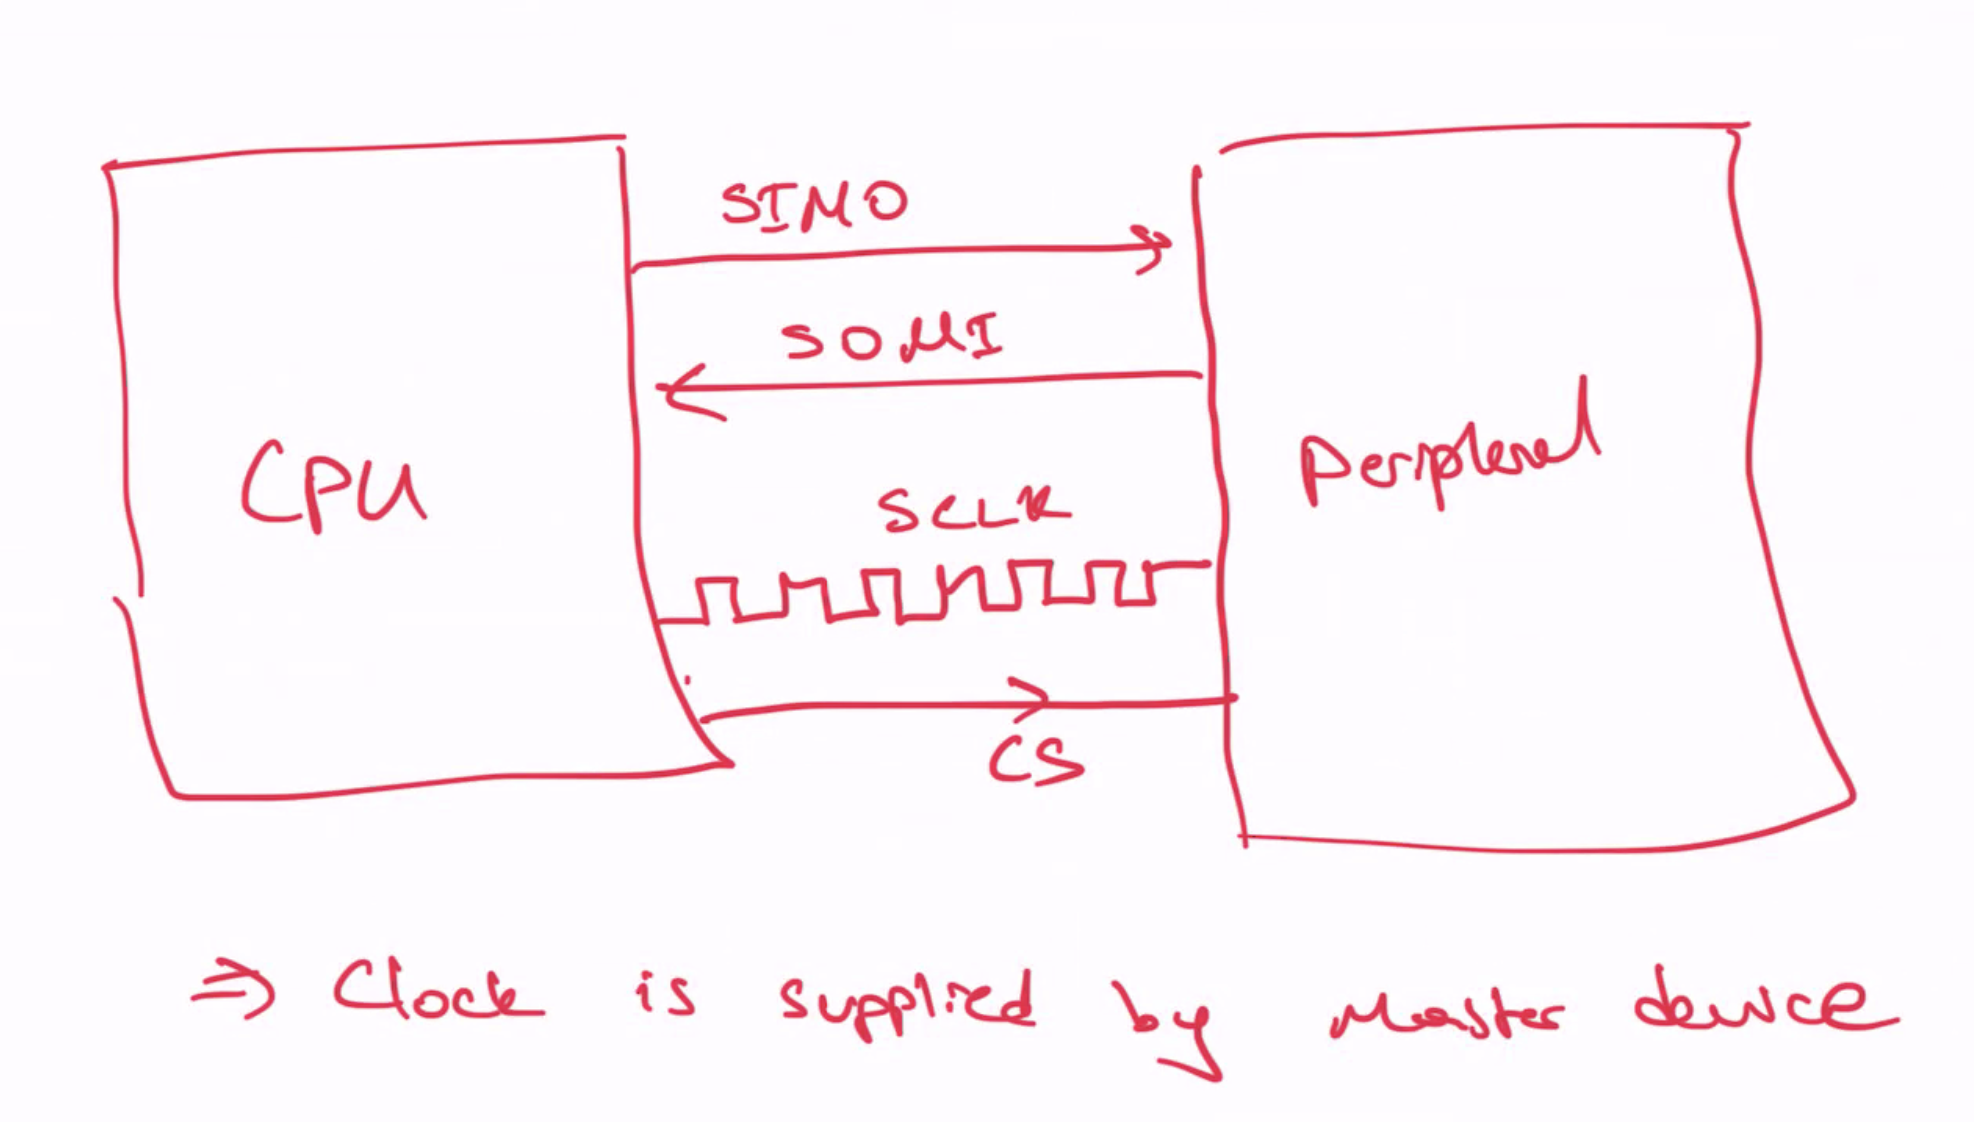 SIMO
SOMI
CPU
Peripheral
SCLK
CS
⇒ Clock is supplied by Master device